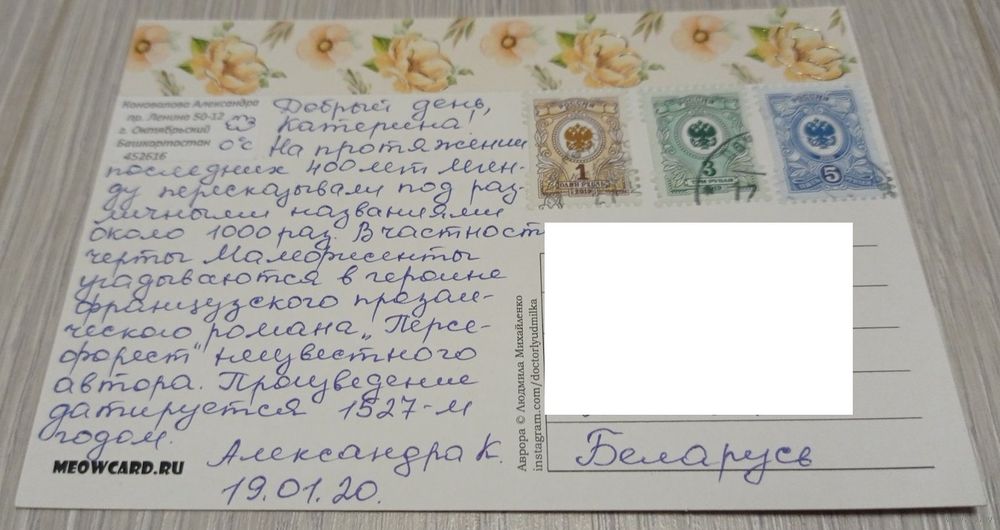 Коновалова Александра
пр. Ленина 50-12
г. Октябрьский
Башкортостан
452616
0°с
Добрый день,
Катерина!
На протяжении
последних 400 лет леген-
ду пересказывали под раз-
личными названиями
около 1000 раз. В частности
черты Малефисенты
угадываются в героине
французского прозаи-
ческого романа „Персе-
форест" неизвестного
автора. Произведение
датируется 1527-м
годом.
Александра К.
19.01.20.
MEOWCARD.RU
РОССИЯ
1
ОДИН РУБЛЬ
2019
РОССИЯ
3
ТРИ РУБЛЯ
2019
РОССИЯ
5
17
Аврора © Людмила Михайленко
instagram.com/doctorlyudmilka
Беларусь